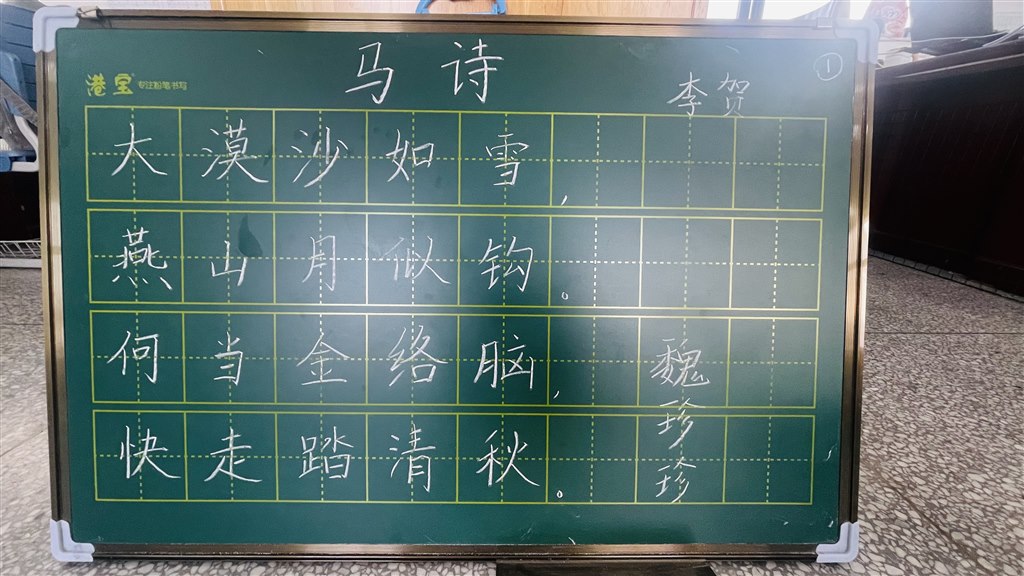 马诗
李贺
①
港宝 专注粉笔书写
大漠沙如雪,
燕山月似钩。
何当金络脑,
快走踏清秋。
魏珍珍